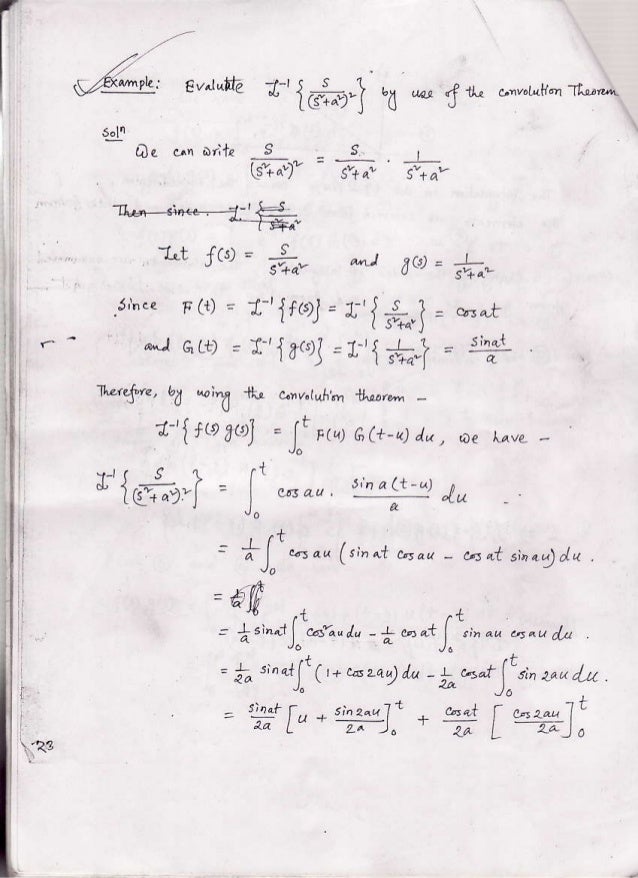 Example: Evaluate ℒ⁻¹ { s / (s²+a²)² } by use of the convolution Theorem
Solⁿ
We can write s / (s²+a²)² = s / s²+a² · 1 / s²+a²
Then since. ℒ⁻¹ { s / s²+a²
Let f(s) = s / s²+a² and g(s) = 1 / s²+a²
Since F(t) = ℒ⁻¹ {f(s)} = ℒ⁻¹ { s / s²+a² } = cos at
and G(t) = ℒ⁻¹ {g(s)} = ℒ⁻¹ { 1 / s²+a² } = sinat / a
Therefore, by using the convolution theorem –
ℒ⁻¹{ f(s) g(s)} = ∫₀ᵗ F(u) G(t-u) du, we have –
ℒ⁻¹ { s / (s²+a²)² } = ∫₀ᵗ cos au. sin a(t-u) / a du
= 1/a ∫₀ᵗ cos au (sin at cos au – cos at sin au) du.
= 1/a sinat ∫₀ᵗ cos²au du – 1/a cos at ∫₀ᵗ sin au cos au du.
= 1/2a sin at ∫₀ᵗ (1 + cos 2au) du – 1/2a cosat ∫₀ᵗ sin 2au du.
= sinat / 2a [ u + sin 2au / 2a ]₀ᵗ + cos at / 2a [ cos 2au / 2a ]₀ᵗ
23